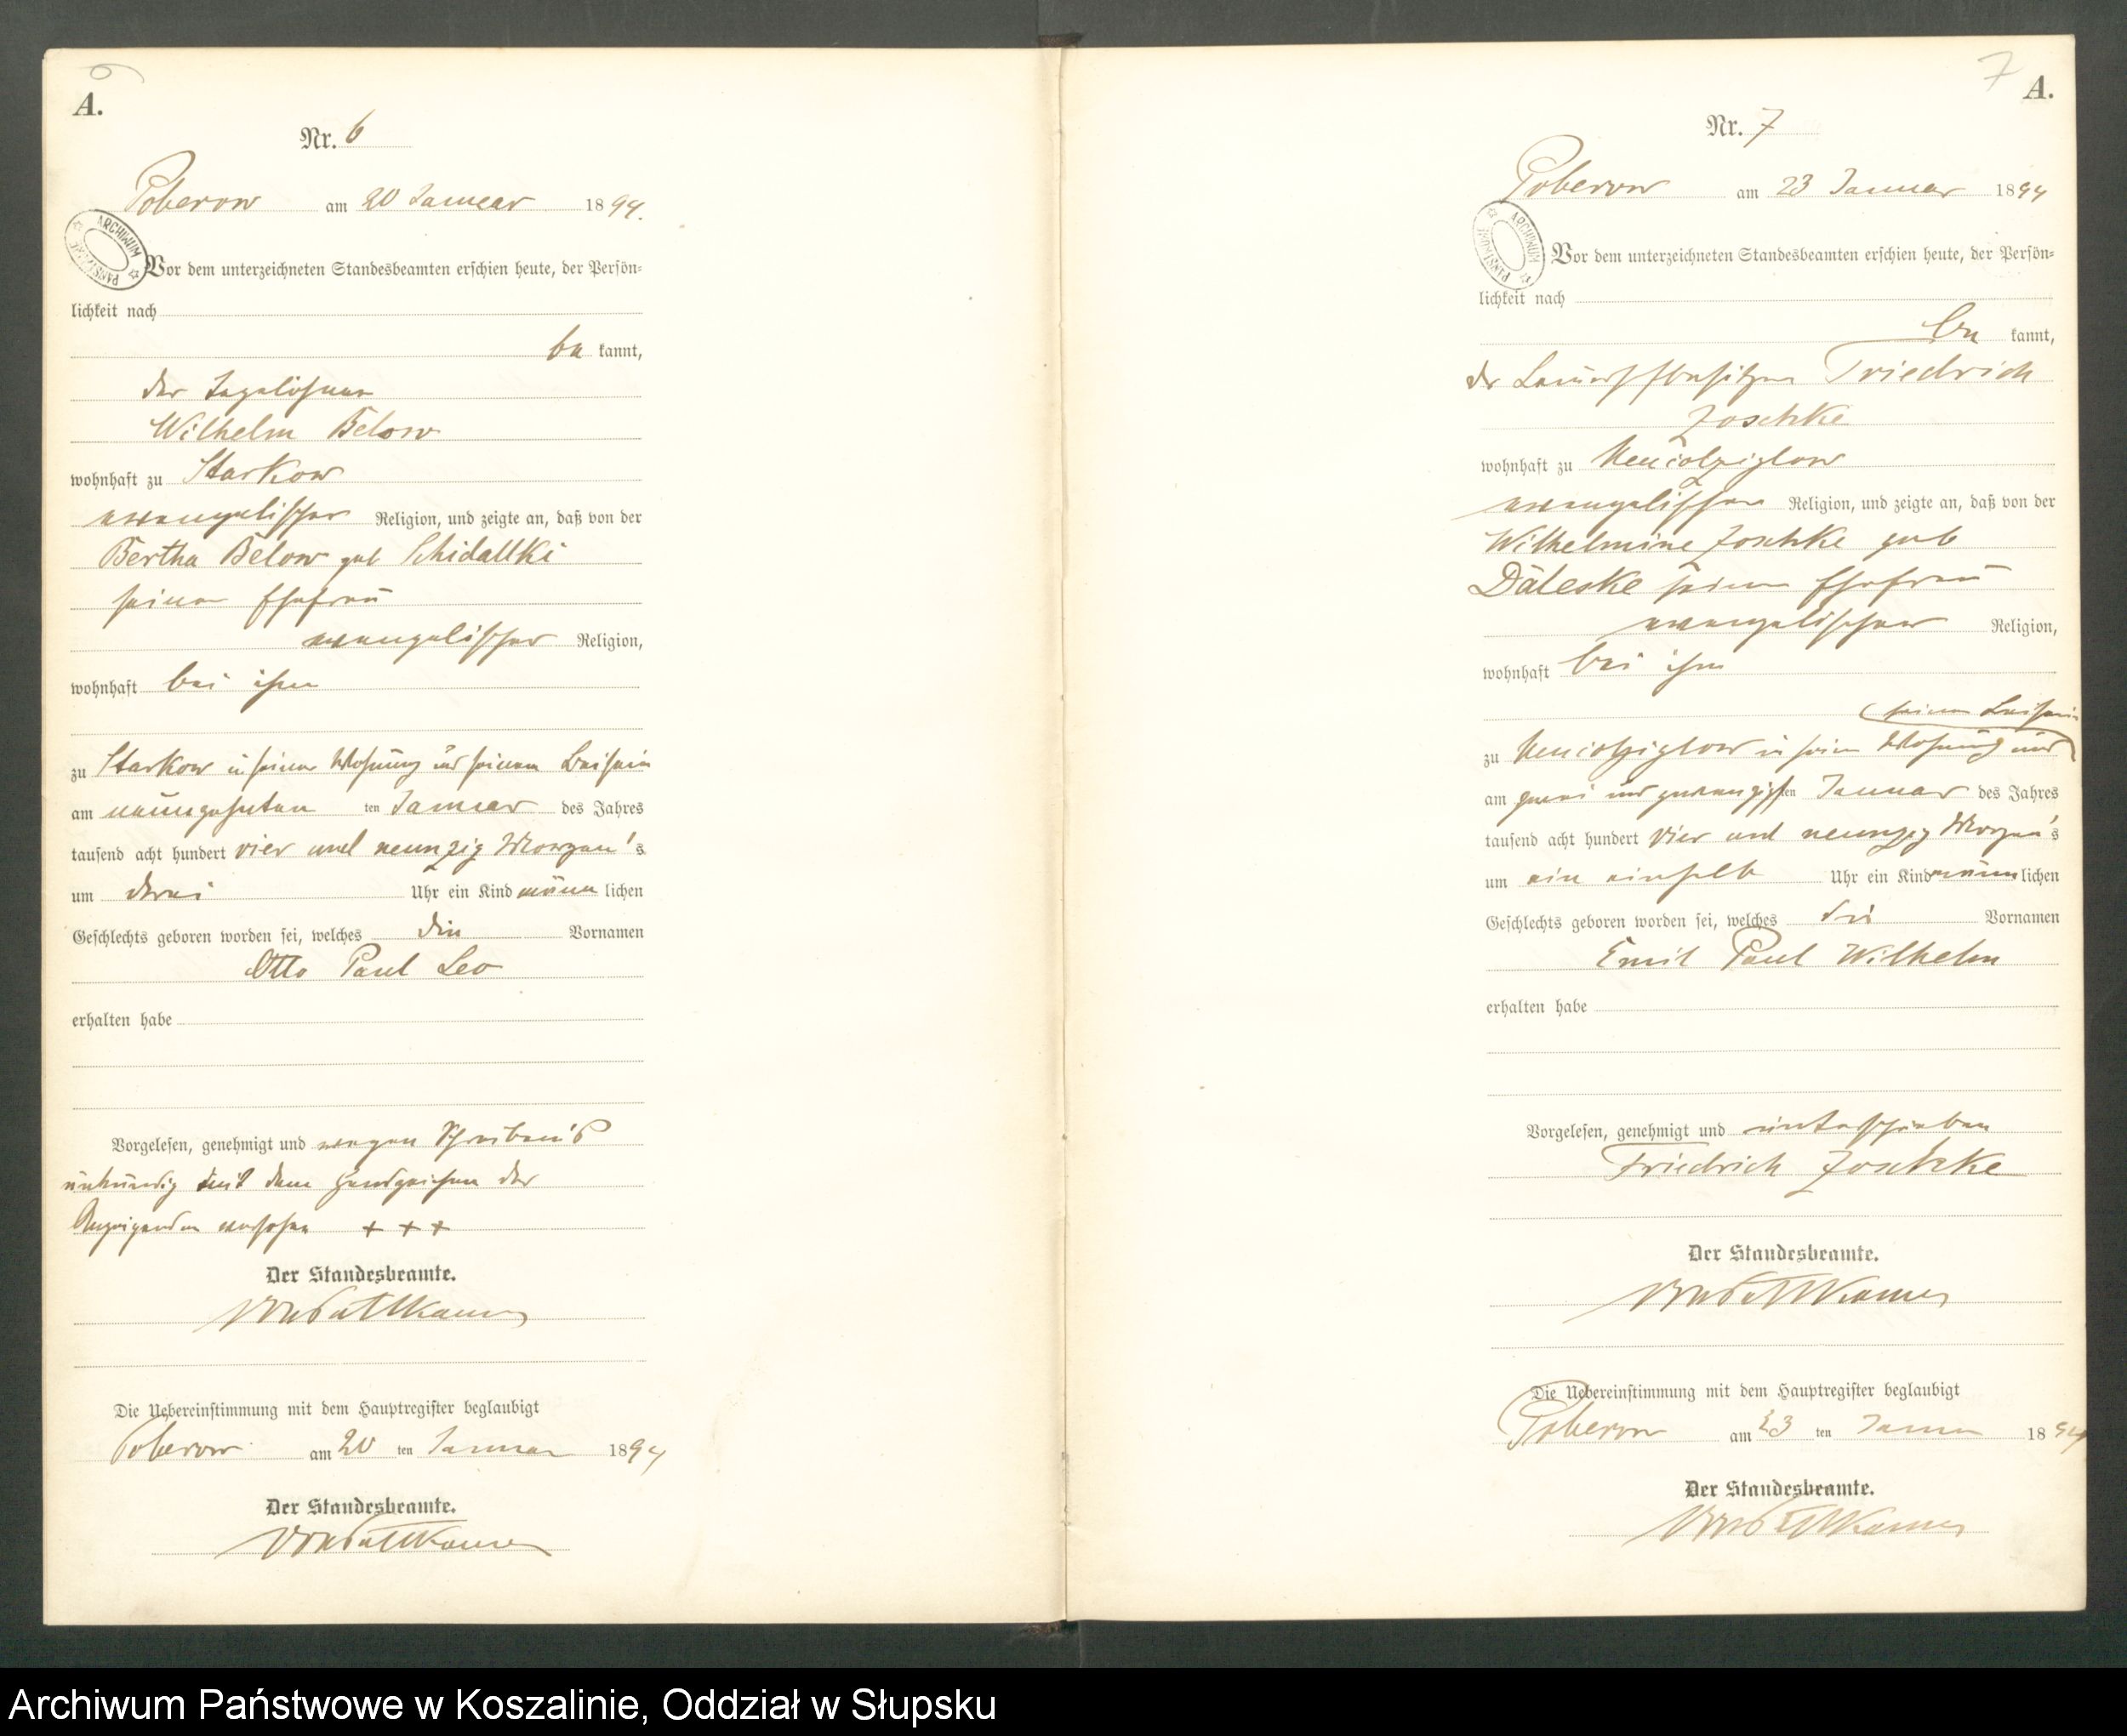 6
A.
Nr. 6
Poberow am 20 Januar 1894.
ARCHIWUM PAŃSTWOWE
Vor dem unterzeichneten Standesbeamten erschien heute, der Persön=
lichkeit nach
be kannt,
der Tagelöhner
Wilhelm Below
wohnhaft zu Starkow
evangelischer Religion, und zeigte an, daß von der
Bertha Below geb Schidattki
seiner Ehefrau
evangelischer Religion,
wohnhaft bei ihm
zu Starkow in seiner Wohnung und seinem Beisein
am neunzehnten ten Januar des Jahres
tausend acht hundert vier und neunzig Morgen's
um drei Uhr ein Kind männ lichen
Geschlechts geboren worden sei, welches die Vornamen
Otto Paul Leo
erhalten habe
Vorgelesen, genehmigt und wegen Schreibens
unkundig mit dem Handzeichen des
Anzeigenden versehen + + +
Der Standesbeamte.
von Puttkamer
Die Uebereinstimmung mit dem Hauptregister beglaubigt
Poberow am 20 ten Januar 1894
Der Standesbeamte.
von Puttkamer
7
A.
Nr. 7
Poberow am 23 Januar 1894
ARCHIWUM PAŃSTWOWE
Vor dem unterzeichneten Standesbeamten erschien heute, der Persön=
lichkeit nach
be kannt,
der Bauerhofbesitzer Friedrich
Joschke
wohnhaft zu Neucolziglow
evangelischer Religion, und zeigte an, daß von der
Wilhelmine Joschke geb
Däleske seiner Ehefrau
evangelischer Religion,
wohnhaft bei ihm
seinem Beisein
zu Neucolziglow in seiner Wohnung und
am zwei und zwanzigsten Januar des Jahres
tausend acht hundert vier und neunzig Morgen's
um ein einhalb Uhr ein Kind männ lichen
Geschlechts geboren worden sei, welches die Vornamen
Emil Paul Wilhelm
erhalten habe
Vorgelesen, genehmigt und unterschrieben
Friedrich Joschke
Der Standesbeamte.
von Puttkamer
Die Uebereinstimmung mit dem Hauptregister beglaubigt
Poberow am 23 ten Januar 1894
Der Standesbeamte.
von Puttkamer
Archiwum Państwowe w Koszalinie, Oddział w Słupsku